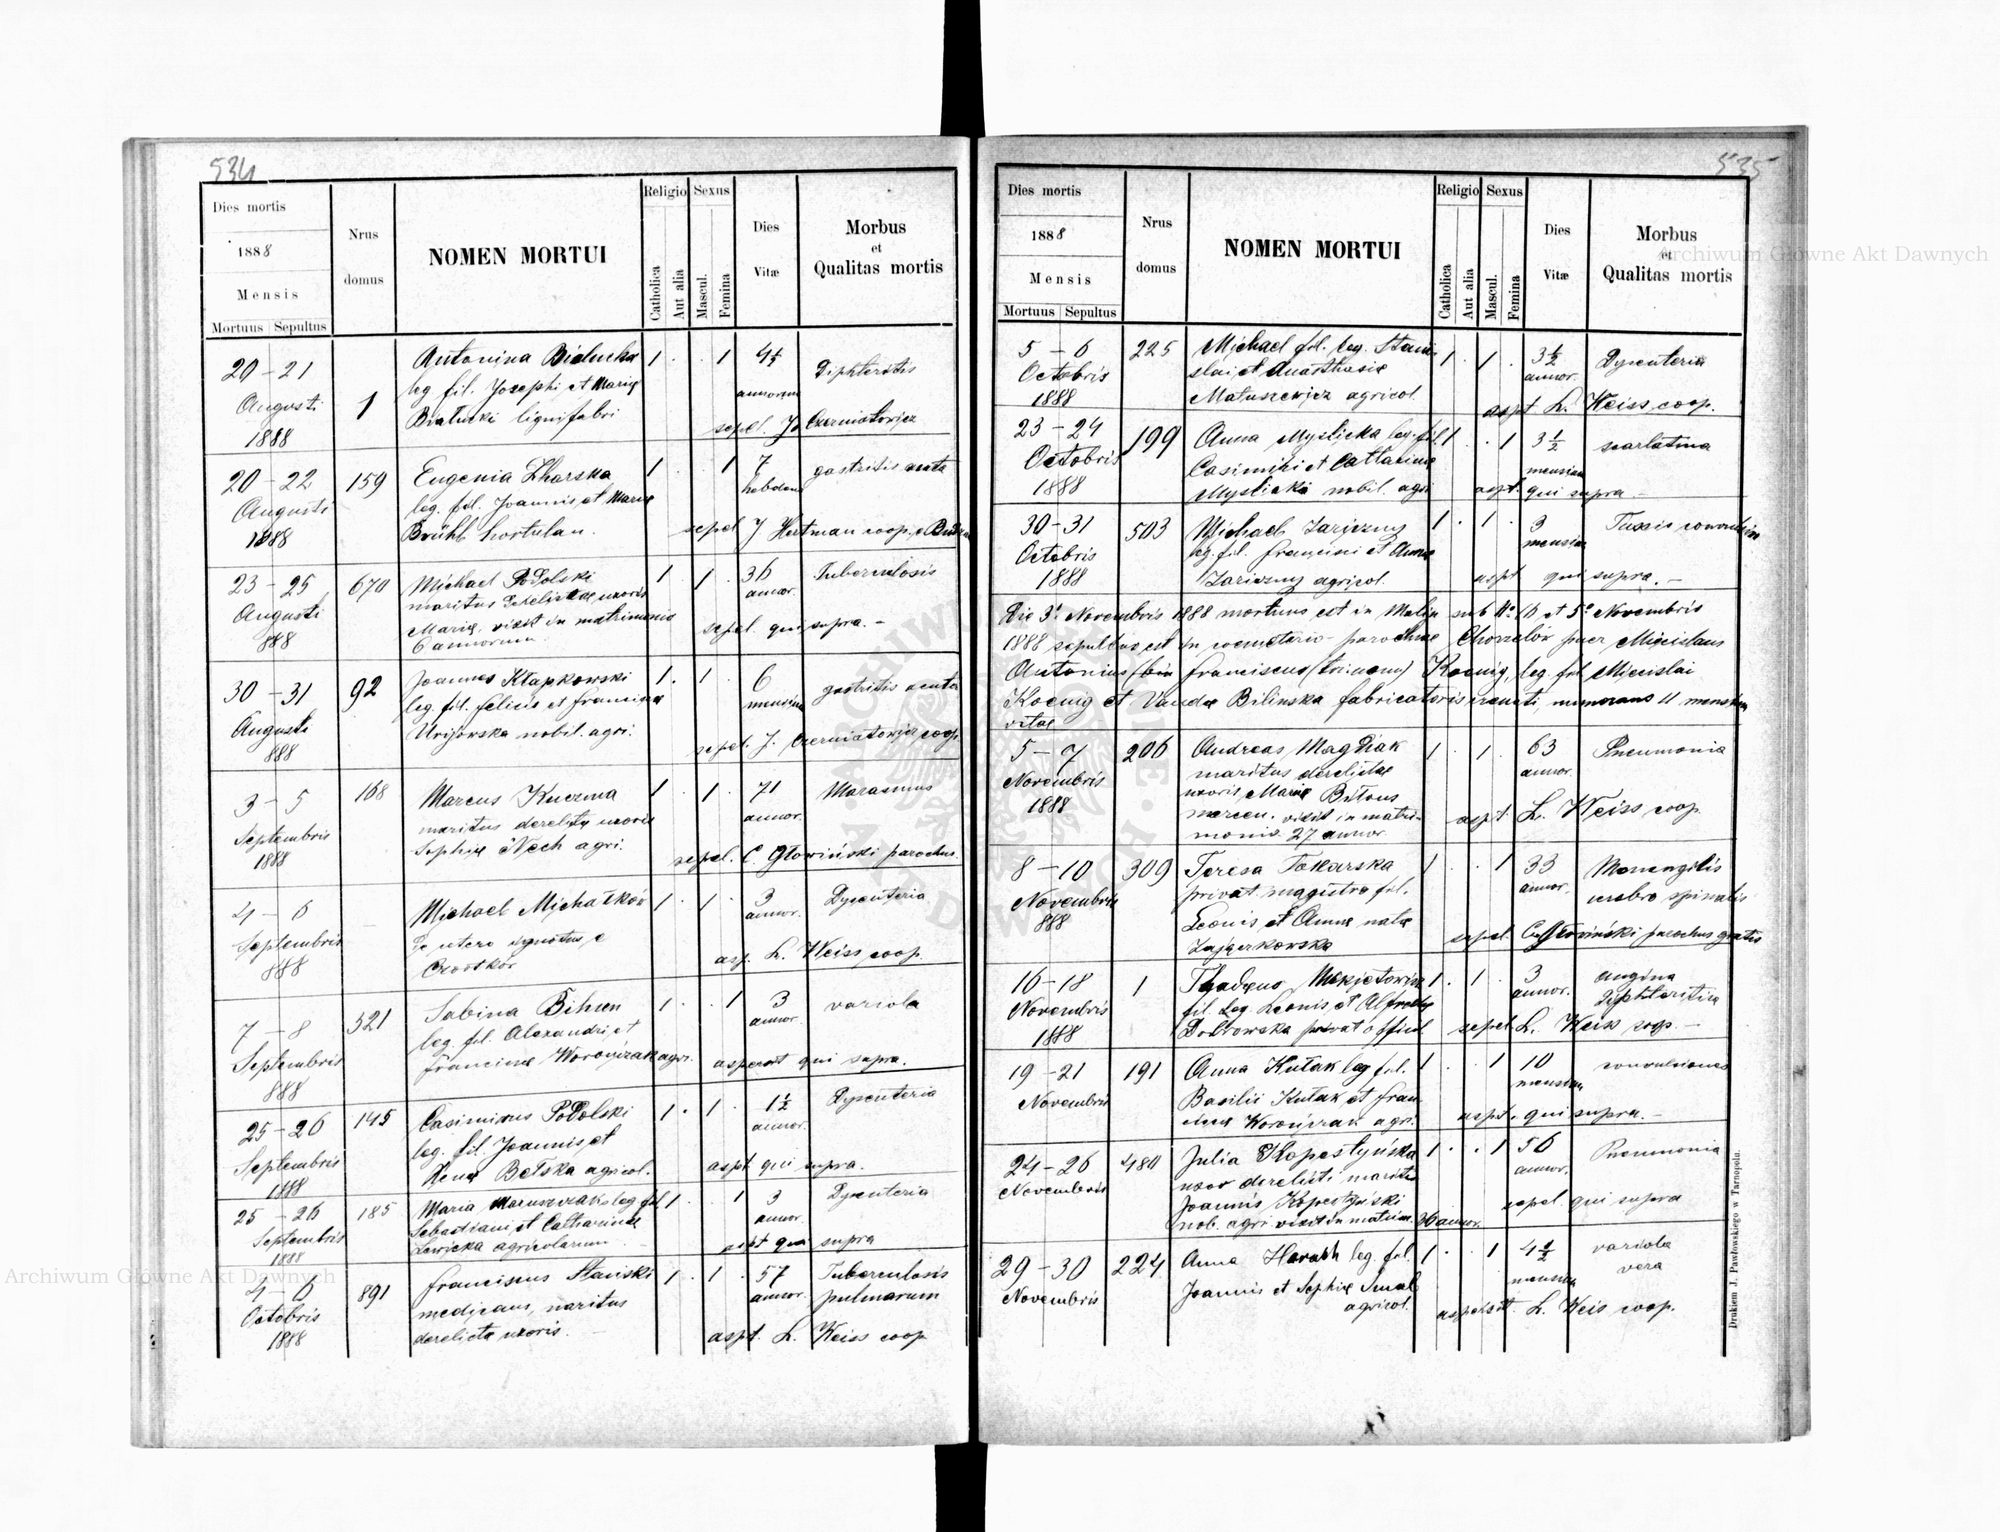 534
Dies mortis
1888
Mensis
Mortuus Sepultus
Nrus
domus
NOMEN MORTUI
Religio
Catholica
Aut alia
Sexus
Mascul.
Femina
Dies
Vitæ
Morbus
et
Qualitas mortis
20 - 21
Augusti
1888
1
Antonina Białucka
leg. fil. Josephi et Mariæ
Białucki lignifabri
1 . . 1
annorum
Diphteritis
sepel. J. Czerniatowicz
20 - 22
Augusti
1888
159
Eugenia
leg. fil. Joannis et Mariæ
Brühl hortulan.
1 . . 1
7
hebdom
gastritis acuta
sepel J Hutman coop. e
23 - 25
Augusti
888
670
Michael Podolski
maritus uxoris
Mariæ, vixit in matrimonio
6 annorum
1 . 1 .
36
annor.
Tuberculosis
sepel. qui supra. -
30 - 31
Augusti
888
92
Joannes Kłapkowski
leg. fil. Felicis et Franciscæ
nobil. agri.
1 . 1 .
6
mensium
gastritis acuta
sepel. J. Czerniatowicz coop.
3 - 5
Septembris
1888
168
Marcus Kuczma
maritus derelictæ uxoris
Sophiæ Nech agri.
1 . 1 .
71
annor.
Marasmus
sepel. C. Głowiński parochus.
4 - 6
Septembris
888
Michael Michałków
de utero ignotus, e
Czortków
1 . 1 .
3
annor.
Dysenteria
asp. L. Weiss coop.
7 - 8
Septembris
888
321
Sabina Bihun
leg. fil. Alexandri et
Franciscæ agri.
1 . . 1
3
annor.
variola
qui supra.
25 - 26
Septembris
1888
145
Casimirus Podolski
leg. fil. Joannis et
Bełska agricol.
1 . 1 .
1½
annor.
Dysenteria
aspt qui supra.
25 - 26
Septembris
1888
185
Maria leg fil
Sebastiani et Catharinæ
Lewicka agricolarum
1 . . 1
3
annor.
Dysenteria
aspt qui supra
4 - 6
Octobris
1888
891
Franciscus Stawski
medicans, maritus
derelicta uxoris.
1 . 1 .
57
annor.
Tuberculosis
pulmonum
aspt. L. Weiss coop
535
Dies mortis
1888
Mensis
Mortuus Sepultus
Nrus
domus
NOMEN MORTUI
Religio
Catholica
Aut alia
Sexus
Mascul.
Femina
Dies
Vitæ
Morbus
et
Qualitas mortis
5 - 6
Octobris
1888
225
Michael fil. leg. Stani-
slai et Anasthasiæ
Matuszewicz agricol
1 . 1 .
3½
annor.
Dysenteria
aspt L. Weiss coop.
23 - 24
Octobris
1888
199
Anna Myslicka leg. fil
Casimiri et Catharinæ
Myslicki nobil. agri
1 . . 1
3½
mensium
scarlatina
aspt. qui supra. -
30 - 31
Octobris
1888
503
Michael Zariczny
leg. fil. Francisci et Annæ
Zariczny agricol.
1 . 1 .
3
mensium
Tussis
aspt qui supra. -
Die 3ᵃ Novembris 1888 mortuus est in sub Nº 16 et 5ª Novembris
1888 sepultus est in coemeterio parochiæ Chorzelów puer Miecislaus
Antonius (bin Franciscus (trinomi) Koenig, leg. fil. Miecislai
Koenig et Vandæ Bilinska fabricatoris numerans 11 mensium
vitæ
5 - 7
Novembris
1888
206
Andreas Magdiak
maritus derelictæ
uxoris Mariæ Bitous
mercen. vixit in matri-
monio 27 annor.
1 . 1 .
63
annor.
Pneumonia
aspt. L. Weiss coop.
8 - 10
Novembris
888
309
Teresa Tokarska
privat. magistra fil.
Leonis et Annæ natæ
Zajączkowska
1 . . 1
33
annor.
Meningitis
cerebro spinalis
sepel. C. Głowiński parochus gratis
16 - 18
Novembris
1888
1
Thadeus
fil. leg. Leonis et
Dobrowska privat offical
1 . 1 .
3
annor.
angina
diphteritica
sepel L. Weiss coop. -
19 - 21
Novembris
191
Anna Kutak leg fil.
Basilii Kutak et Fran-
agri.
1 . . 1
10
mensium
convulsiones
aspt. qui supra. -
24 - 26
Novembris
480
Julia Kopestyńska
uxor derelicti mariti
Joannis Kopestyński
nob. agri vixit in matrim. 36 annor.
1 . . 1
56
annor.
Pneumonia
sepel qui supra
29 - 30
Novembris
224
Anna Horath leg. fil.
Joannis et Sophiæ Smal
agricol.
1 . . 1
4½
mensium
variola
vera
L. Weis coop.
Drukiem J. Pawłowskiego w Tarnopolu.
Archiwum Główne Akt Dawnych
Archiwum Główne Akt Dawnych